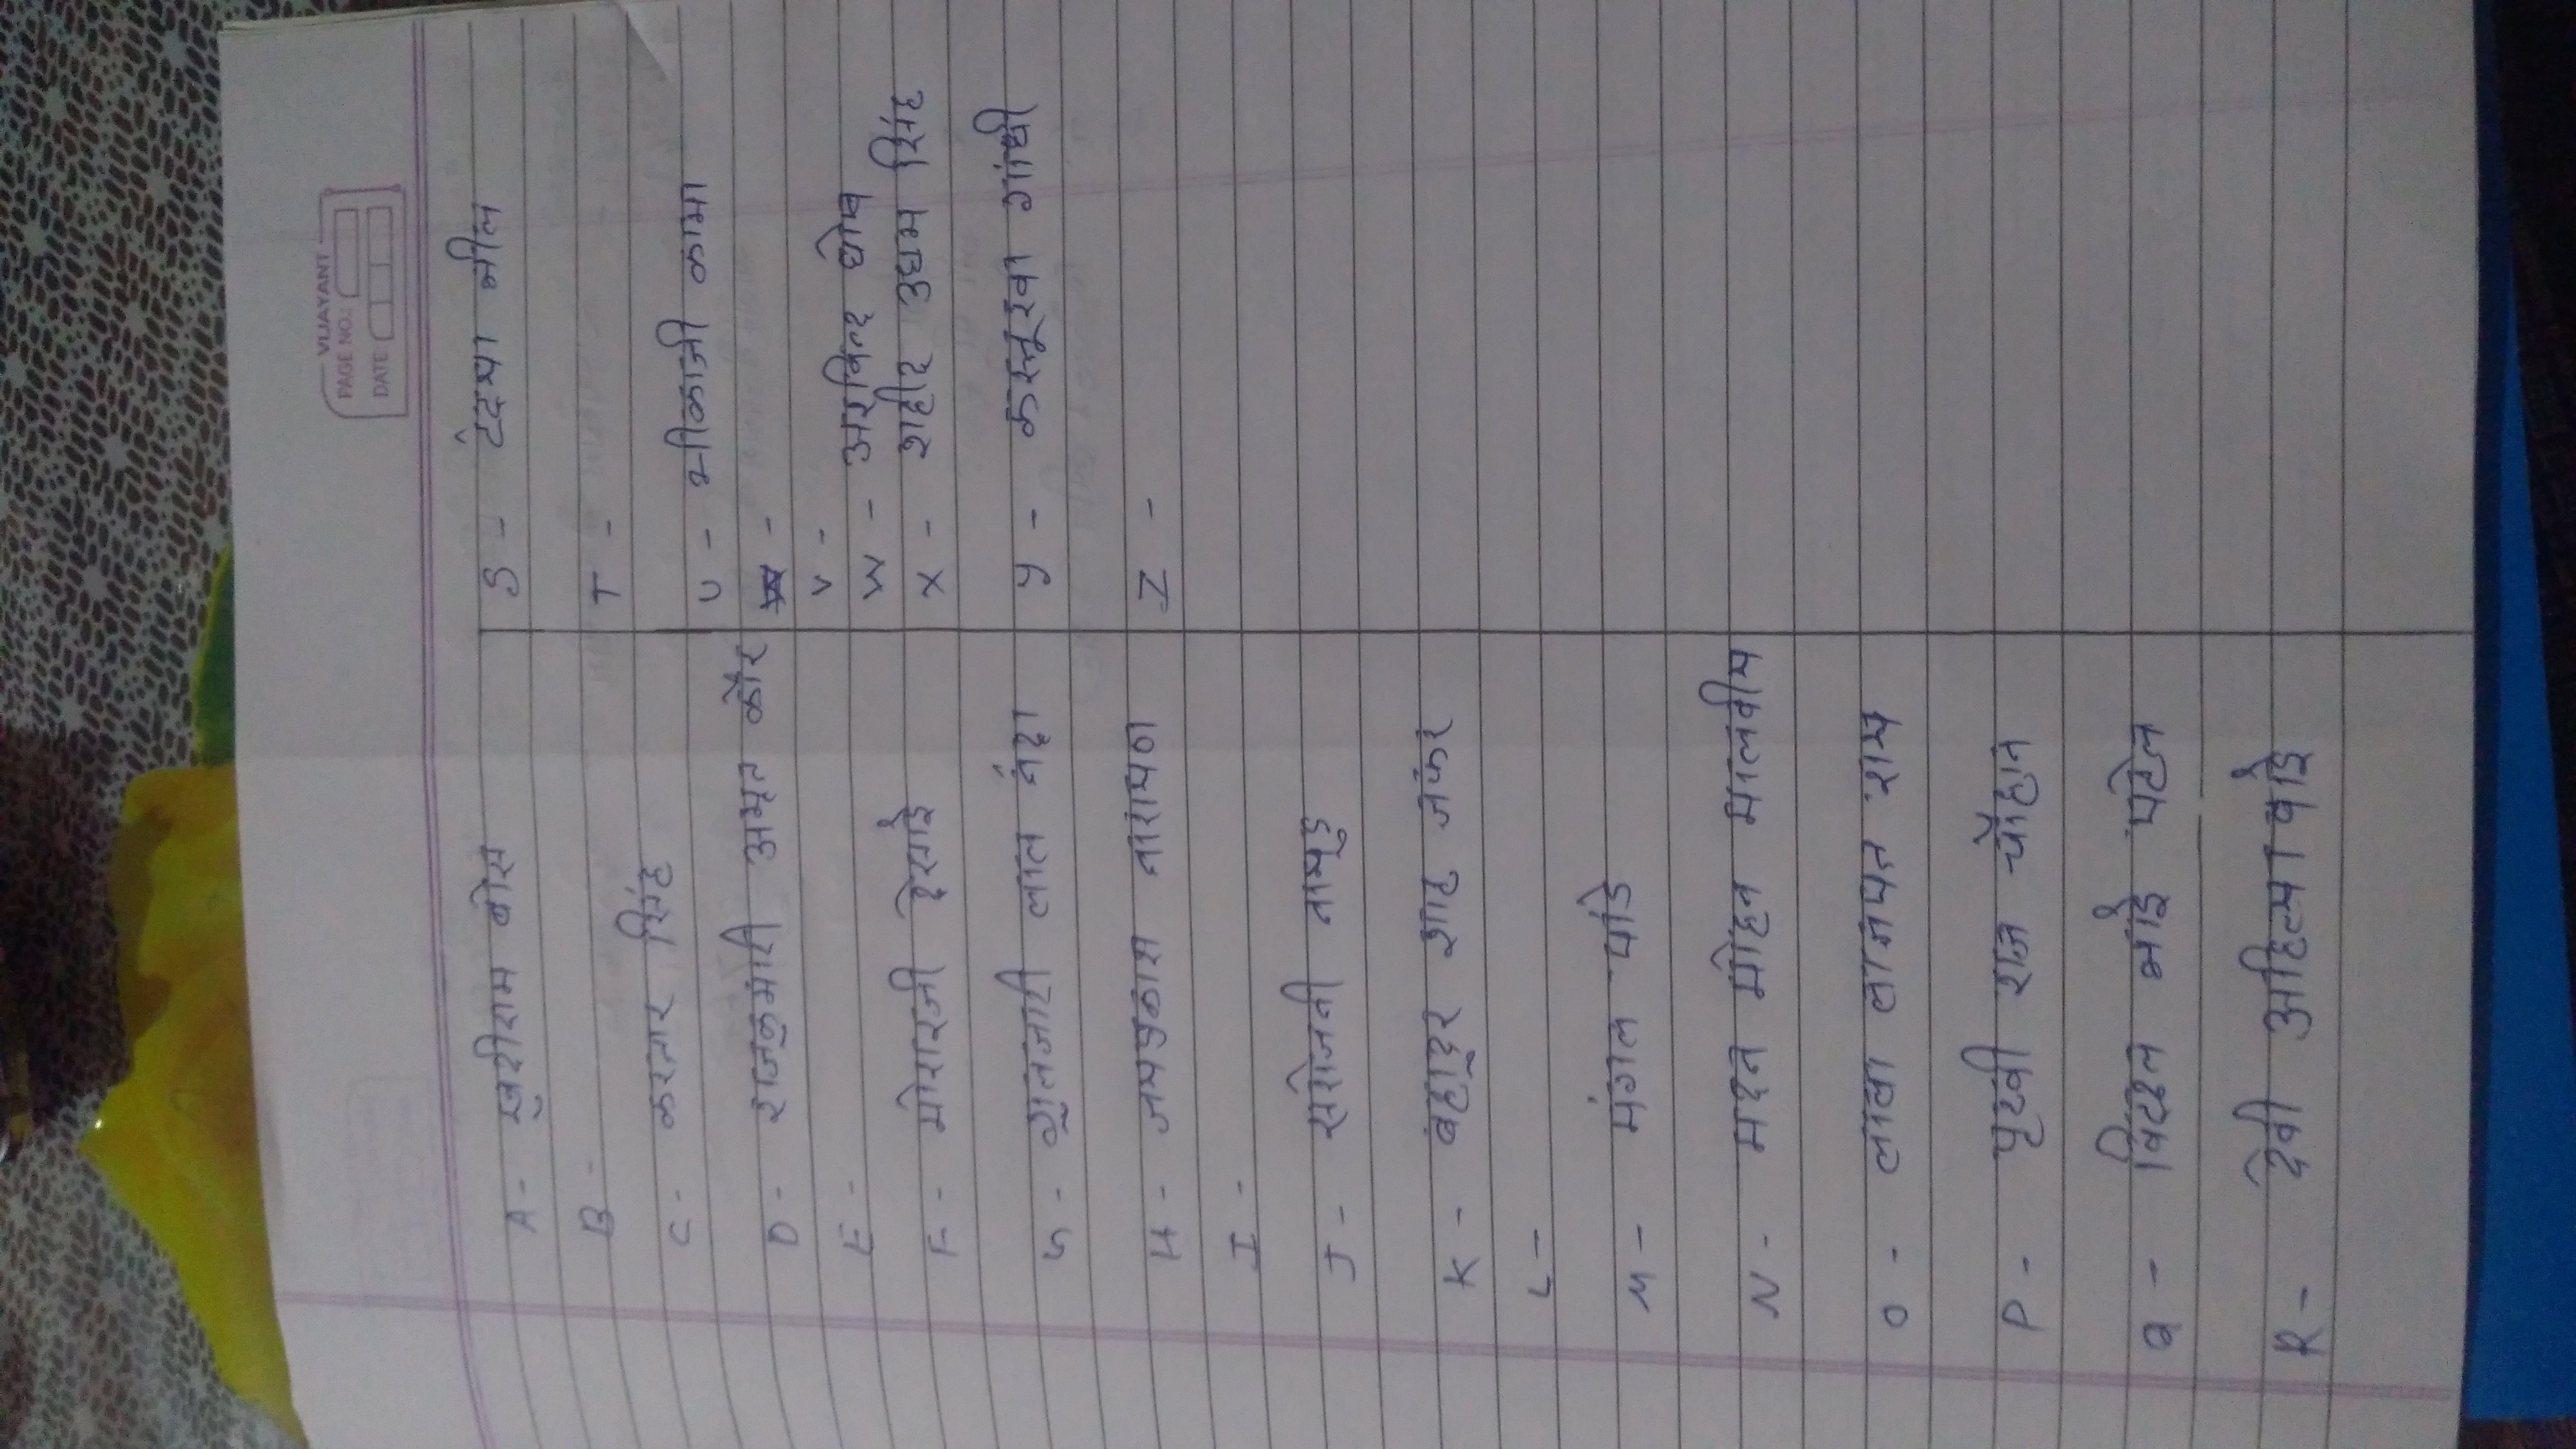 VIJAYANT
PAGE NO.:
DATE:
A - खुदीराम बोस
B -
C - करतार सिंह
D - राजकुमारी अमृत कौर
E -
F - मोरारजी देसाई
G - गुलजारी लाल नंदा
H - जयप्रकाश नारायण
I -
J - सरोजनी नायडू
K - बहादुर शाह जफर
L -
M - मंगल पांडे
N - मदन मोहन मालवीय
O - लाला लाजपत राय
P - पृथ्वी राज चौहान
Q - विट्ठल भाई पटेल
R - देवी अहिल्या बाई
S - टंट्या भील
T -
U - भीकाजी कामा
-
V -
W - अरविन्द घोष
X - शहीद उधम सिंह
Y - कस्तूरबा गांधी
Z -